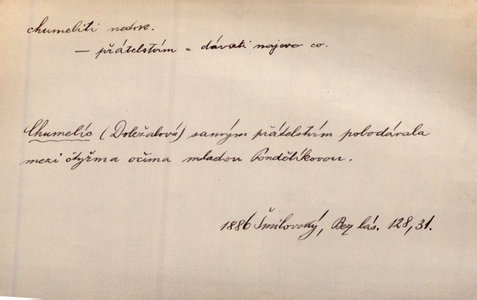 chumeliti nedok.
— přátelstvím = dávati najevo co.
Chumelíc (Doležalová) samým přátelstvím pobodávala
mezi čtyřma očima mladou Pondělíkovou.
1886 Šmilovský, Bez lás. 128, 31.